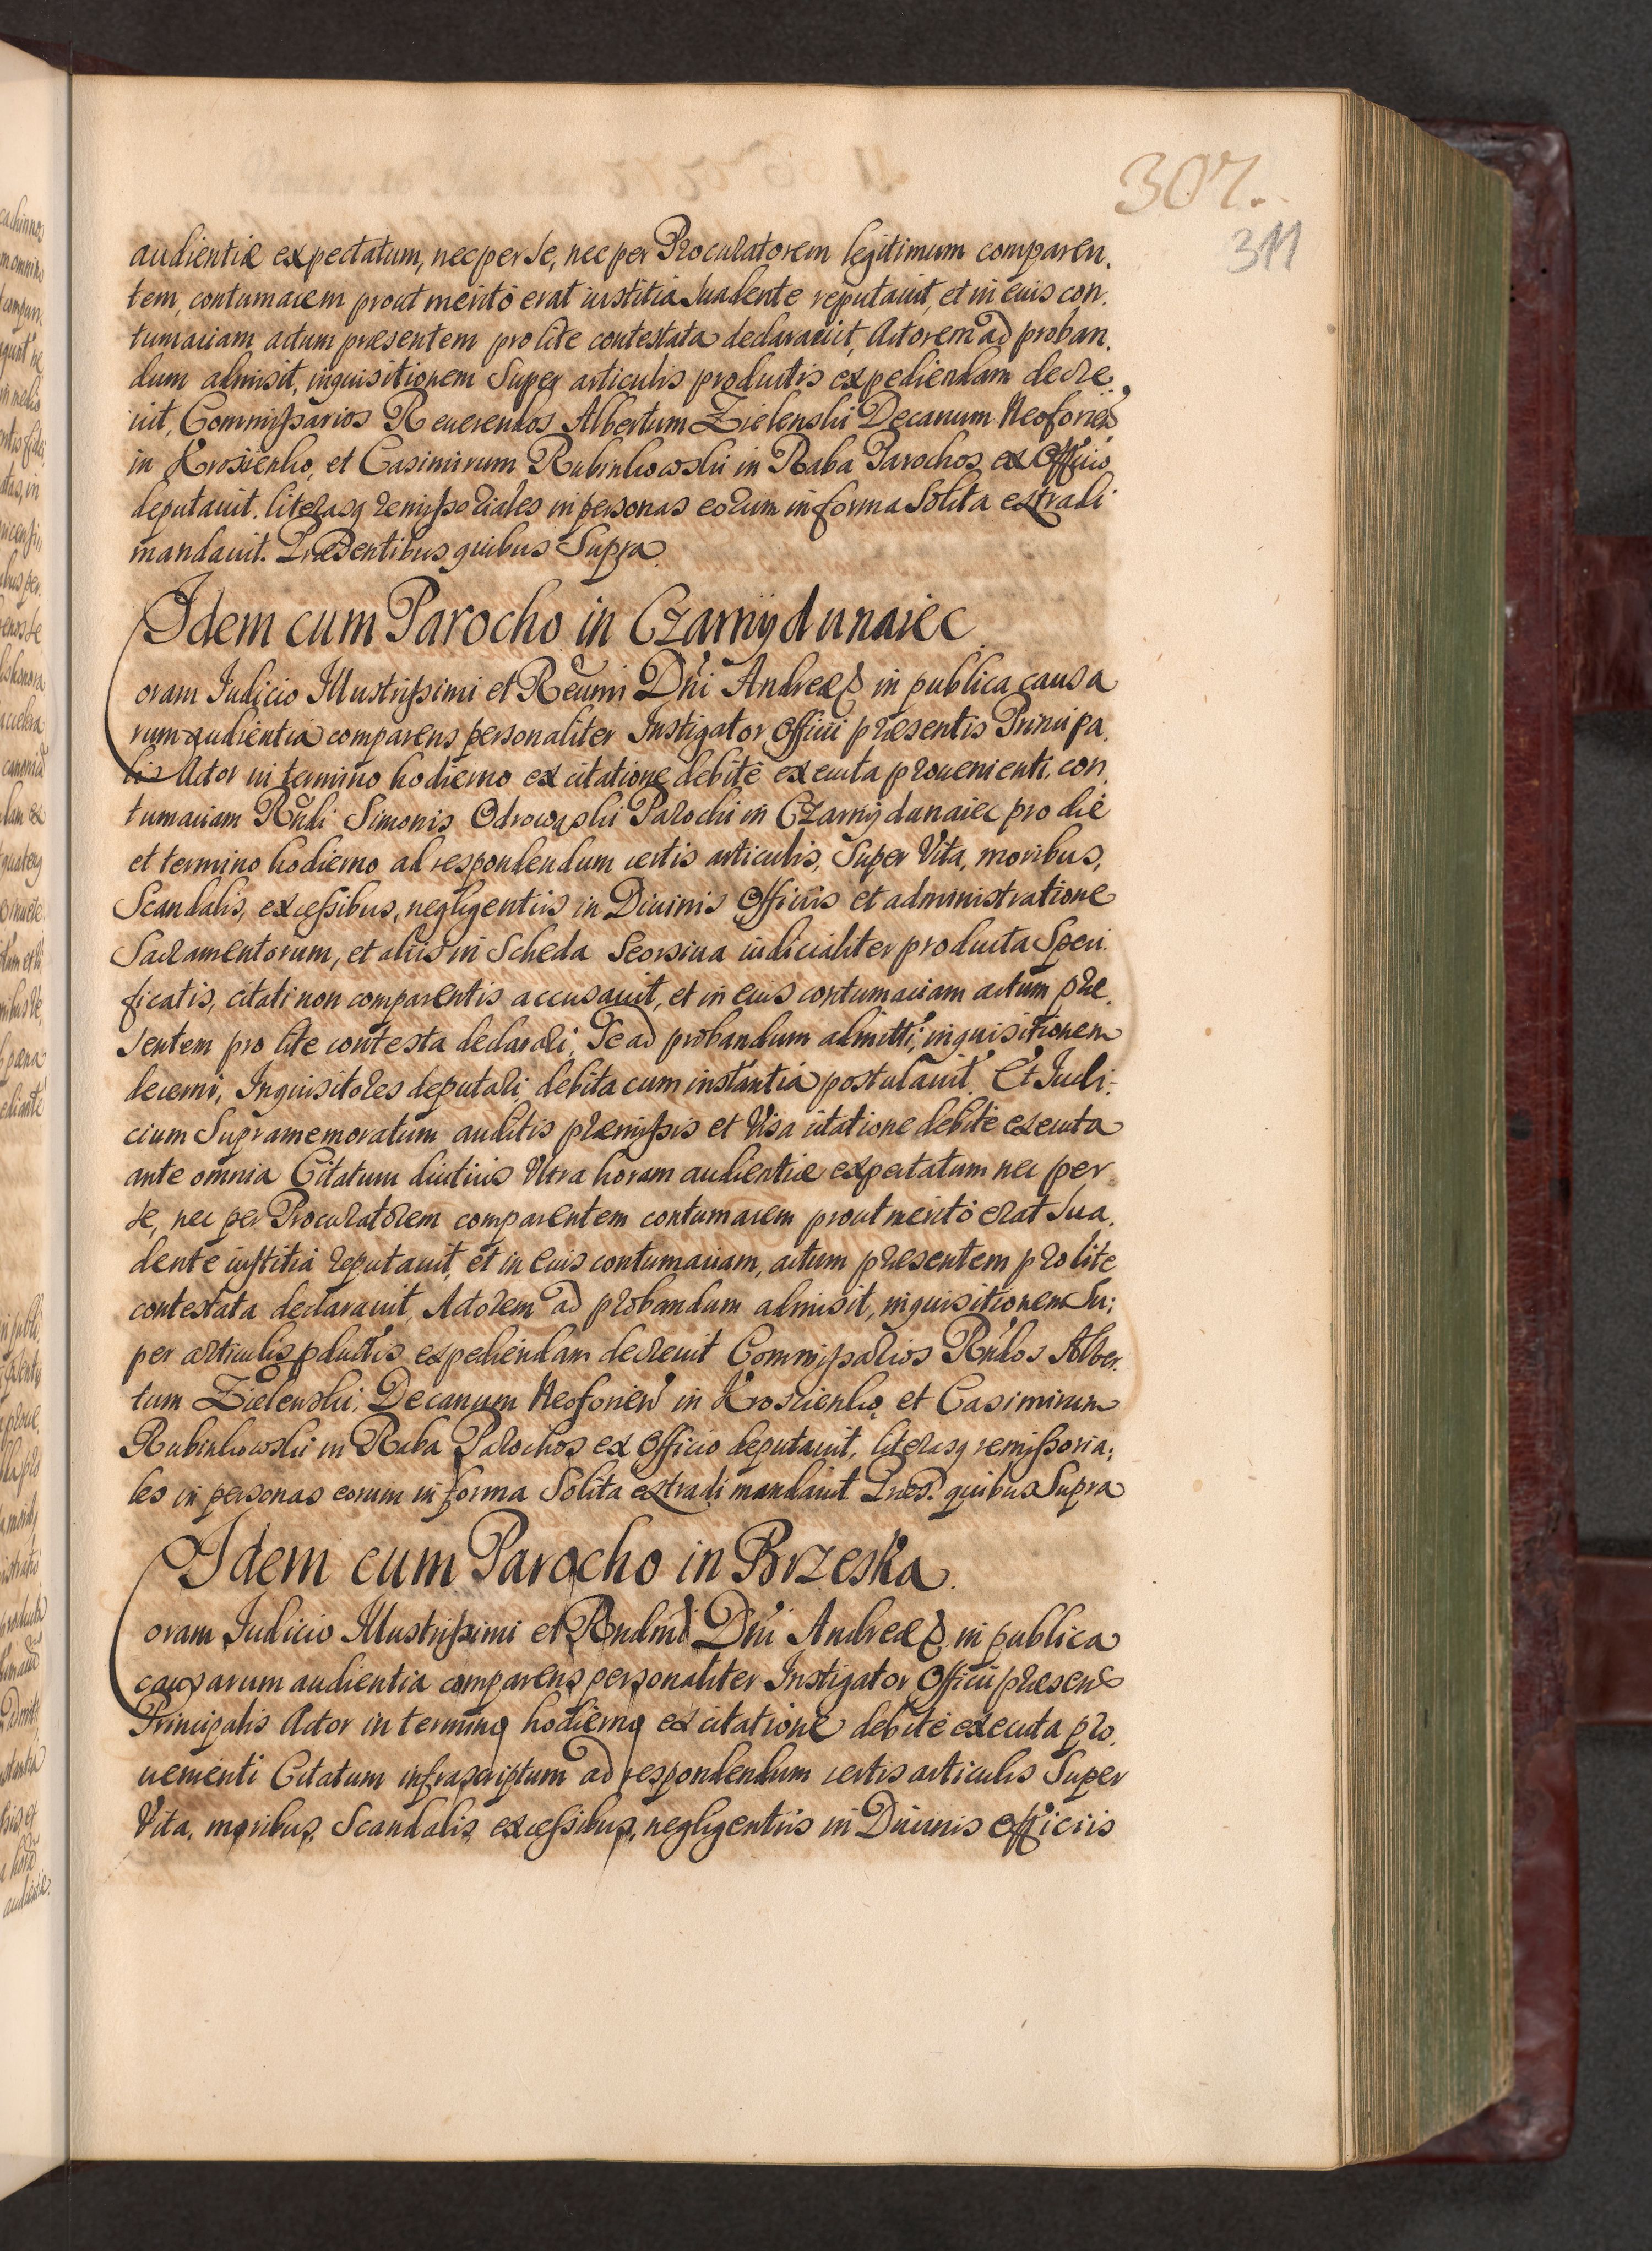 307.
311
audientiæ expectatum, nec per se, nec per Procuratorem legitimum comparen.
tem, contumacem prout meritò erat iustitia suadente reputauit, et in eius con.
tumaciam actum præsentem pro lite contestata declarauit, Actorem ad proban.
dum admisit, inquisitionem super articulis productis expediendam decre.
uit, Commissarios Reuerendos Albertum Zielenski Decanum Neoforien
in Krosienko, et Casimirum Rubinkowski in Raba Parochos ex Officio
deputauit, literasq remissoriales in personas eorum in forma solita extradi
mandauit. Præsentibus quibus supra
Idem cum Parocho in Czarny dunaiec
Coram Iudicio Illustrissimi et Reumi Dni Andreæ in publica causa
rum audientia comparens personaliter Instigator Officii præsentis Principa.
lis Actor in termino hodierno ex citatione debitè executa prouenienti, con
tumaciam Rndi Simonis Odrowąski Parochi in Czarny dunaiec pro die
et termino hodierno ad respondendum certis articulis, super Vita, moribus,
Scandalis, excessibus, negligentiis in Diuinis Officiis et administratione
Sacramentorum, et aliis in Scheda seorsiua iudicialiter producta speci.
ficatis, citati non comparentis accusauit, et in eius contumaciam actum præ.
sentem pro lite contesta declarari, Se ad probandum admitti, inquisitionem
decerni, Inquisitores deputari, debita cum instantia postulauit. Et Iudi-
cium supramemoratum auditis præmissis et Visa citatione debitè executa
ante omnia Citatum diutius Vltra horam audientiæ expectatum nec per
se, nec per Procuratorem comparentem contumacem prout meritò erat sua.
dente iustitia reputauit, et in eius contumaciam, actum præsentem pro lite
contestata declarauit, Actorem ad probandum admisit, inquisitionem su;
per articulis pductis expediendam decreuit Commissarios Rndos Alber.
tum Zielenski, Decanum Neoforien in Kroscienko et Casimirum
Rubinkowski in Raba Parochos ex Officio deputauit, literasq remissoria;
les in personas eorum in forma solita extradi mandauit Præs. quibus supra
Idem cum Parocho in Brzeska
Coram Iudicio Illustrissimi et Rndmi Dni Andreæ in publica
causarum audientia comparens personaliter Instigator Officii præsen
Principalis Actor in termino hodierno ex citatione debitè executa pro.
uenienti Citatum infrascriptum ad respondendum certis articulis super
Vita, moribus, Scandalis, excessibus, negligentiis in Diuinis Officiis